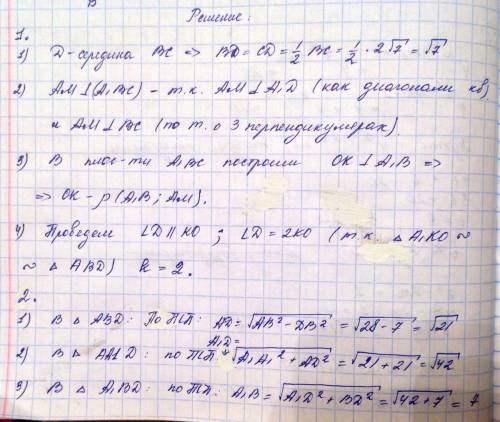 В
Решение:
1.
1) D - середина BC => BD = CD = 1/2 BC = 1/2 · 2√7 = √7
2) AM ⊥ (A₁BC) - т.к. AM ⊥ A₁D (как диагонали кв)
и AM ⊥ BC (по т. о 3 перпендикулярах).
3) В плос-ти A₁BC построим OK ⊥ A₁B =>
=> OK - ρ(A₁B; AM).
4) Проведем LD ∥ KO ; LD = 2KO (т.к. △ A₁KO ~
~ △ ABD) k = 2.
2.
1) В △ ABD: По ТП: AD = √AB² - DB² = √28 - 7 = √21
2) В △ AA1D: по ТП: A₁D = √A₁A₁² + AD² = √21 + 21 = √42
3) В △ A₁BD: по ТП: A₁B = √A₁D² + BD² = √42 + 7 = 7